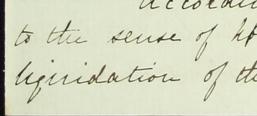 to the sense of
liquidation of the